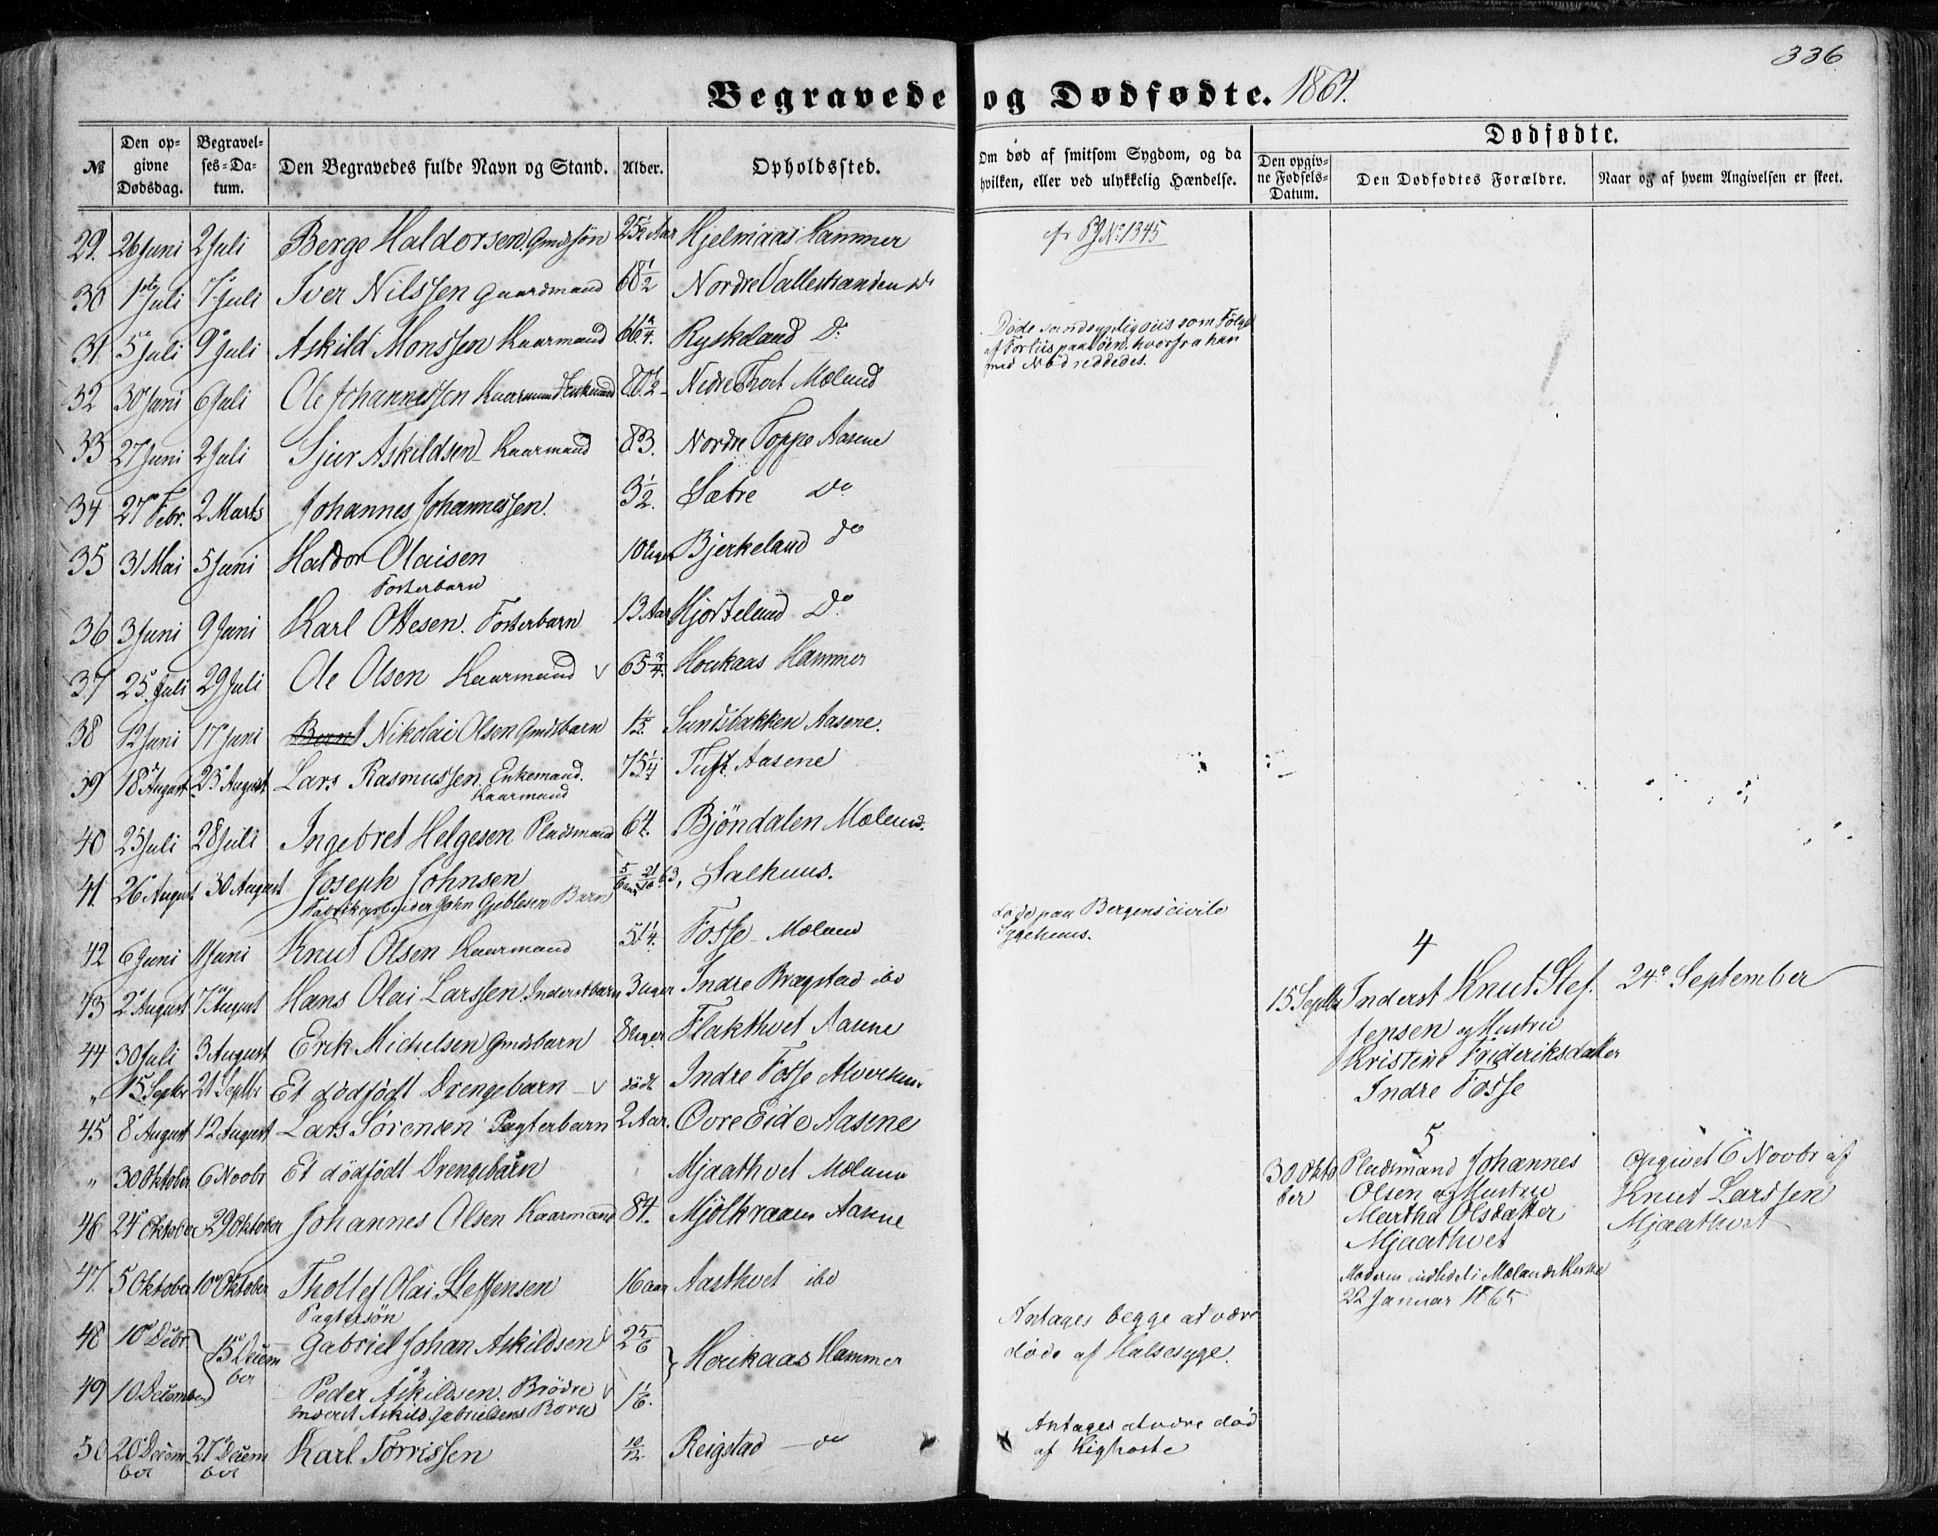 336
Begravede og Dødfødte. 1864.
Dødfødte.
№ Den op-givne Dødsdag. Begravel-ses-Da-tum. Den Begravedes fulde Navn og Stand. Alder. Opholdssted. Om død af smitsom Sygdom, og da hvilken, eller ved ulykkelig Hændelse. Den opgiv-ne Fødsels-Datum. Den Dødfødtes Forældre. Naar og af hvem Angivelsen er skeet.
29. 26 Juni 2 Juli Berge Haldorsen Gmdsøn 25½ Aar Hjelmaas Hammer
№ 1345
30 1 Juli 7 Juli Iver Nilssen Gaardmand 68½ Nordre Vallestranden Do
31 5 Juli 9 Juli Askild Monssen Kaarmand 66 Ryskeland Do
Døde sandsynligviis som Følge
af Forliis paa Söen, hvorfra han
med Nød reddedes.
32 30 Juni 6 Juli Ole Johannessen Kaarmand Enkemand 80½ Nedre Mæland
33 27 Juni 2 Juli Sjur Askildsen Kaarmand 83. Nordre Toppe Aasene
34 27 Febr. 2 Marts Johannes Johannessen. 3½. Sæbre Do
35 31 Mai 5 Juni Haldor Olaisen 10 Uger Bjerkeland Do
Fosterbarn
36 3 Juni 9 Juni Karl Ottesen. Fosterbarn 13 Aar Hjortelund Do
37 25 Juli 29 Juli Ole Olsen Kaarmand v 65¾. Hammer
38 12 Juni 17 Juni Bernt Nikolai Olsen Gmdsbarn 1⅕. Sundsbakken Aasene.
39 18 August 23 August Lars Rasmussen. Enkemand. 75¼ Tuft. Aasene
Kaarmand
40 25 Juli 28 Juli Ingebret Helgesen Pladsmand 64. Bjöndalen Mæland.
41. 26 August 30 August Joseph Johnsen Salhuus.
Fabrikarbeider John Gjeblesen Barn
42 6 Juni 11 Juni Knut Olsen Kaarmand 51¼. Fosse Mæland
døde paa Bergens civile
Sygehuus.
43 2 August 7 August Hans Olai Larssen Inderstbarn 3 Uger Indre Bragstad ibd
44 30 Juli 3 August Erik Michelsen Gmdsbarn 8 Uger Flakthvet Aasene
" 15 Septbr 21 Septbr Et dødfødt Drengebarn v dödt Indre Fosse
4
15 Septbr Inderst Knut Stef. 24 September
Jensen og Hustru
Kristine Frideriksdatter
Indre Fosse
45 8 August 12 August Lars Sørensen Pagterbarn 2 Aar. Ovre Eide Aasene
" 30 Oktober 6 Novbr Et dødfødt Drengebarn Mjaathvet Mæland
5
30 Oktober Pladsmand Johannes Opgivet 6 Novbr af
Olsen og Hustru Knut Larssen
Martha Olsdatter Mjaathvet
Mjaathvet
Moderen indledet i Mælands Kirke
22 Januar 1865
46 24 Oktober 29 Oktober Johannes Olsen Kaarmand 84. Mjølkraaen Aasene
47. 5 Oktober 10 Oktober Thollef Olai Steffensen 16 aar Aasthvet ibd
Pagtersön
48 10 Decbr 15 December Gabriel Johan Askildsen 2 5/6 Hammer
og
Antages begge at være
døde af Halssyge.
49 10 December Peder Askildsen. Brödre v 1 1/6.
Inderst Askild Gabrielsens Born
50 20 December 27 December Karl Torrissen 10/12. Reigstad do
Antages at være død
af Kighoste